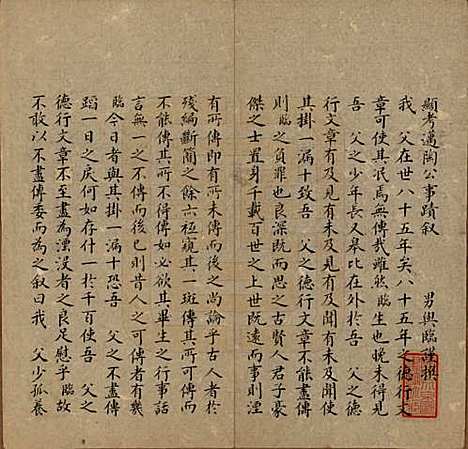 顯考邁陶公事蹟叙
男與臨謹撰
我　父在世八十五年矣八十五年之德行文
章可使其泯焉無傳我雖然臨生也晚未得見
吾　父之少年長又舉比在外於吾　父之德
行文章有及見有未及見有及聞有未及聞使
其掛一漏十致吾　父之德行文章不能盡傳
則臨之負罪也良深既而思之古賢人君子豪
傑之士置身千載百世之上世既遠而事則湮
有所傳即有所未傳而後之尚論乎古人者於
殘編斷簡之餘六極窺其一班傳其所可傳而
不能傳其所不得傳如必欲其畢生之行事話
言無一之不傳而後已則昔人之可傳者有幾
臨今日者與其掛一漏十恐吾　父之不盡傳
蹈一日之戾何如存什一於千百使吾　父之
德行文章不至盡為湮沒者之良足慰乎臨故
不敢以不盡傳委而為之叙曰我　父少孤養